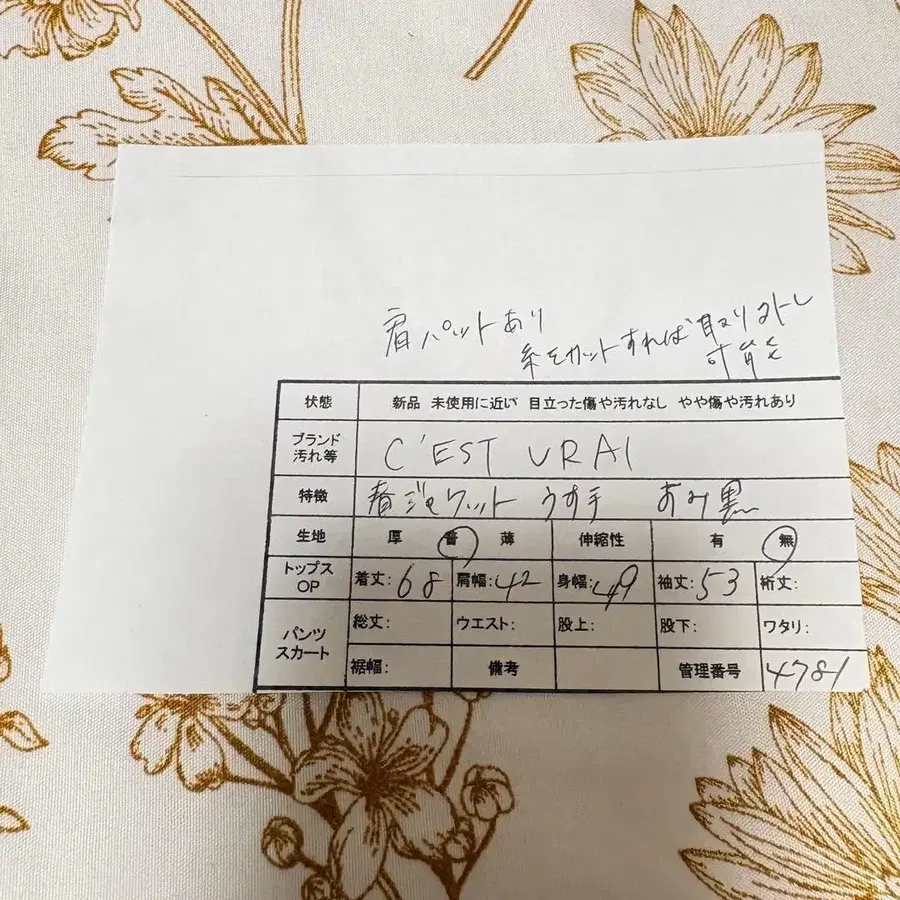 肩パットあり
糸をカットすれば取り外し
可能
状態 新品 未使用に近い 目立った傷や汚れなし やや傷や汚れあり
ブランド
汚れ等
C'EST VRAI
特徴 春ジャケット うす手 黒
生地 厚 普 薄 伸縮性 有 無
トップス
OP
着丈:68 肩幅:42 身幅:49 袖丈:53 裄丈:
パンツ
スカート
総丈: ウエスト: 股上: 股下: ワタリ:
裾幅: 備考 管理番号 4781